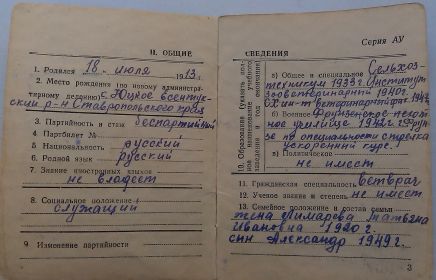 II. ОБЩИЕ
1. Родился 18 июля 1913 г.
2. Место рождения (по новому админис-
тративному делению) с. Юцкое Ессентук-
ский р-н Ставропольского края
3. Партийность и стаж беспартийный
4. Партбилет №
5. Национальность русский
6. Родной язык русский
7. Знание иностранных языков
не владеет
8. Социальное положение
служащий
9. Изменение партийности
СВЕДЕНИЯ
Серия АУ
10. Образование (указать полное наименование учебного заведения и год окончания)
а) Общее и специальное Сельхоз-
техникум 1933 г. Институт
зооветеринарный 1940 г.
б) Военное Фрунзенское пехот-
ное училище 1942 г. Фрун-
зе по специальности стрелка
ускоренный курс.
в) Политическое
не имеет
11. Гражданская специальность ветврач
12. Ученое звание и степень не имеет
13. Семейное положение и состав семьи
жена Татьяна
Ивановна 1920 г.
сын Александр 1949 г.
3